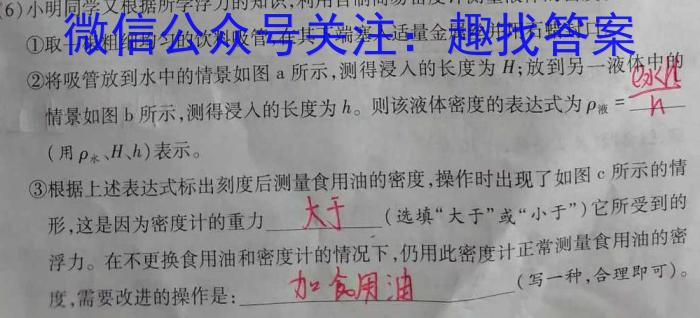 (6)小明同学又根据所学浮力的知识,利用自制简易密度计测量液体的密度
微信公众号关注：趣找答案
①取一根粗细均匀的饮料吸管,在其下端塞入适量金属丝并用石蜡封口
②将吸管放到水中的情景如图a所示,测得浸入的长度为H;放到另一液体中的
情景如图b所示,测得浸入的长度为h。则该液体密度的表达式为ρ液=ρ水H/h
(用ρ水、H、h)表示。
③根据上述表达式标出刻度后测量食用油的密度,操作时出现了如图c所示的情
形,这是因为密度计的重力 大于 (选填“大于”或“小于”)它所受到的
浮力。在不更换食用油和密度计的情况下,仍用此密度计正常测量食用油的密
度,需要改进的操作是: 加食用油 (写一种,合理即可)。